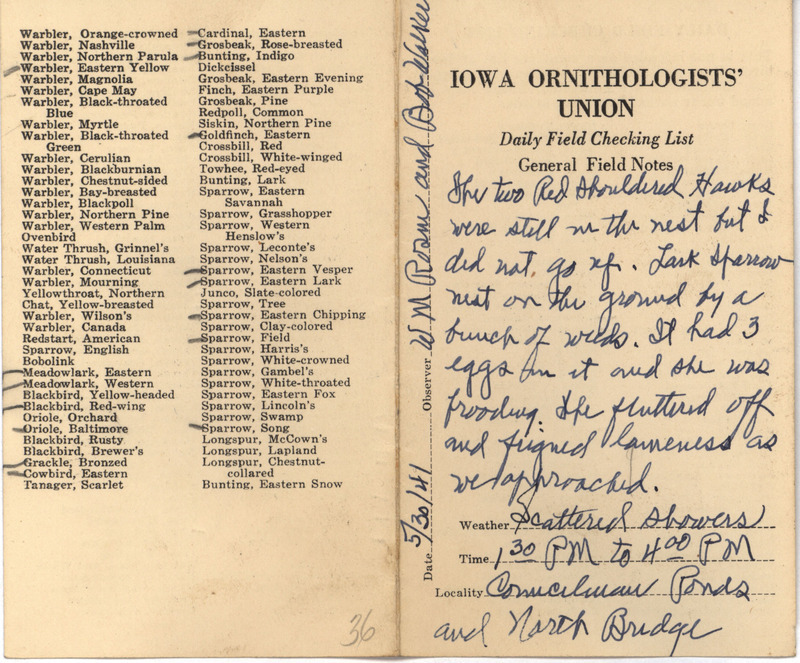 Warbler, Orange-crowned
Warbler, Nashville
Warbler, Northern Parula
Warbler, Eastern Yellow
Warbler, Magnolia
Warbler, Cape May
Warbler, Black-throated
Blue
Warbler, Myrtle
Warbler, Black-throated
Green
Warbler, Cerulian
Warbler, Blackburnian
Warbler, Chestnut-sided
Warbler, Bay-breasted
Warbler, Blackpoll
Warbler, Northern Pine
Warbler, Western Palm
Ovenbird
Water Thrush, Grinnel's
Water Thrush, Louisiana
Warbler, Connecticut
Warbler, Mourning
Yellowthroat, Northern
Chat, Yellow-breasted
Warbler, Wilson's
Warbler, Canada
Redstart, American
Sparrow, English
Bobolink
Meadowlark, Eastern
Meadowlark, Western
Blackbird, Yellow-headed
Blackbird, Red-wing
Oriole, Orchard
Oriole, Baltimore
Blackbird, Rusty
Blackbird, Brewer's
Grackle, Bronzed
Cowbird, Eastern
Tanager, Scarlet
Cardinal, Eastern
Grosbeak, Rose-breasted
Bunting, Indigo
Dickcissel
Grosbeak, Eastern Evening
Finch, Eastern Purple
Grosbeak, Pine
Redpoll, Common
Siskin, Northern Pine
Goldfinch, Eastern
Crossbill, Red
Crossbill, White-winged
Towhee, Red-eyed
Bunting, Lark
Sparrow, Eastern
Savannah
Sparrow, Grasshopper
Sparrow, Western
Henslow's
Sparrow, Leconte's
Sparrow, Nelson's
Sparrow, Eastern Vesper
Sparrow, Eastern Lark
Junco, Slate-colored
Sparrow, Tree
Sparrow, Eastern Chipping
Sparrow, Clay-colored
Sparrow, Field
Sparrow, Harris's
Sparrow, White-crowned
Sparrow, Gambel's
Sparrow, White-throated
Sparrow, Eastern Fox
Sparrow, Lincoln's
Sparrow, Swamp
Sparrow, Song
Longspur, McCown's
Longspur, Lapland
Longspur, Chestnut-
collared
Bunting, Eastern Snow
36
Date 5/30/41 Observer W M Rosene and Bob Walker
IOWA ORNITHOLOGISTS'
UNION
Daily Field Checking List
General Field Notes
The two Red Shouldered Hawks
were still in the nest but I
did not go up. Lark Sparrow
nest on the ground by a
bunch of weeds. It had 3
eggs in it and she was
brooding. She fluttered off
and feigned lameness as
we approached.
Weather Scattered showers
Time 1 30 PM to 4 00 PM
Locality Councilman Ponds
and North Bridge